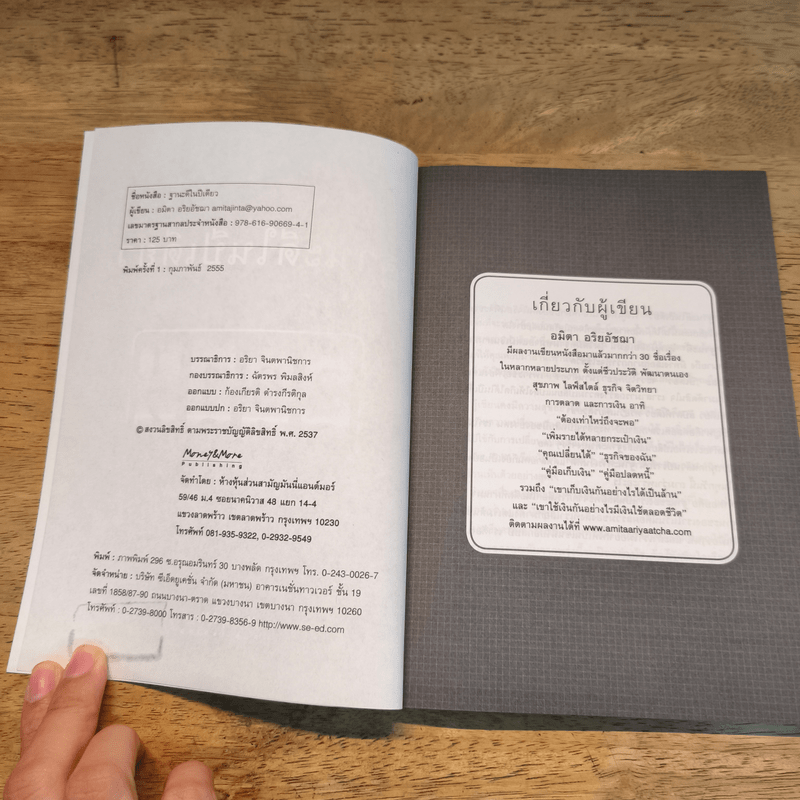 ชื่อหนังสือ : ฐานะดีในปีเดียว
ผู้เขียน : อมิตา อริยอัชฌา amitajinta@yahoo.com
เลขมาตรฐานสากลประจำหนังสือ : 978-616-90669-4-1
ราคา : 125 บาท
พิมพ์ครั้งที่ 1 : กุมภาพันธ์ 2555
บรรณาธิการ : อริยา จินตพานิชการ
กองบรรณาธิการ : ฉัตรพร พิมลสิงห์
ออกแบบ : ก้องเกียรติ ดำรงกีรติกุล
ออกแบบปก : อริยา จินตพานิชการ
© สงวนลิขสิทธิ์ ตามพระราชบัญญัติลิขสิทธิ์ พ.ศ. 2537
Money&More
Publishing
จัดทำโดย : ห้างหุ้นส่วนสามัญมันนี่แอนด์มอร์
59/46 ม.4 ซอยนาคนิวาส 48 แยก 14-4
แขวงลาดพร้าว เขตลาดพร้าว กรุงเทพฯ 10230
โทรศัพท์ 081-935-9322, 0-2932-9549
พิมพ์ : ภาพพิมพ์ 296 ซ.อรุณอมรินทร์ 30 บางพลัด กรุงเทพฯ โทร. 0-243-0026-7
จัดจำหน่าย : บริษัท ซีเอ็ดยูเคชั่น จำกัด (มหาชน) อาคารเนชั่นทาวเวอร์ ชั้น 19
เลขที่ 1858/87-90 ถนนบางนา-ตราด แขวงบางนา เขตบางนา กรุงเทพฯ 10260
โทรศัพท์ : 0-2739-8000 โทรสาร : 0-2739-8356-9 http://www.se-ed.com
เกี่ยวกับผู้เขียน
อมิตา อริยอัชฌา
มีผลงานเขียนหนังสือมาแล้วมากกว่า 30 ชื่อเรื่อง
ในหลากหลายประเภท ตั้งแต่ชีวประวัติ พัฒนาตนเอง
สุขภาพ ไลฟ์สไตล์ ธุรกิจ จิตวิทยา
การตลาด และการเงิน อาทิ
“ต้องเท่าไหร่ถึงจะพอ”
“เพิ่มรายได้หลายกระเป๋าเงิน”
“คุณเปลี่ยนได้” “ธุรกิจของฉัน”
“คู่มือเก็บเงิน” “คู่มือปลดหนี้”
รวมถึง “เขาเก็บเงินกันอย่างไรได้เป็นล้าน”
และ “เขาใช้เงินกันอย่างไรมีเงินใช้ตลอดชีวิต”
ติดตามผลงานได้ที่ www.amitaariyaatcha.com